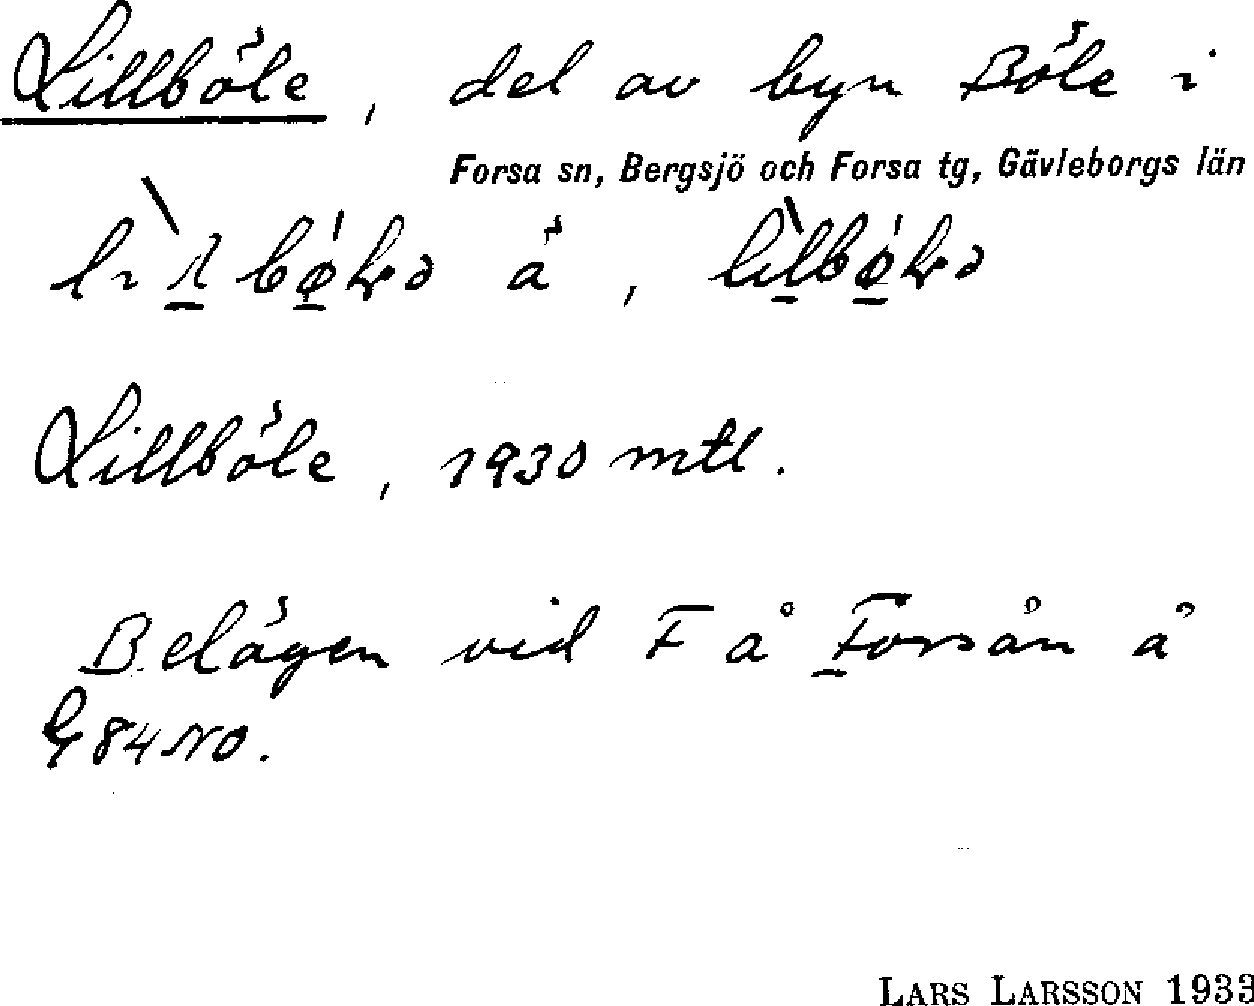 Lillböle, del av byn Böle i
Forsa sn, Bergsjö och Forsa tg, Gävleborgs län
ä,
Lillböle, 1930 mtl.
Belägen vid F å Forsån å
G 84 NO.
LARS LARSSON 1933